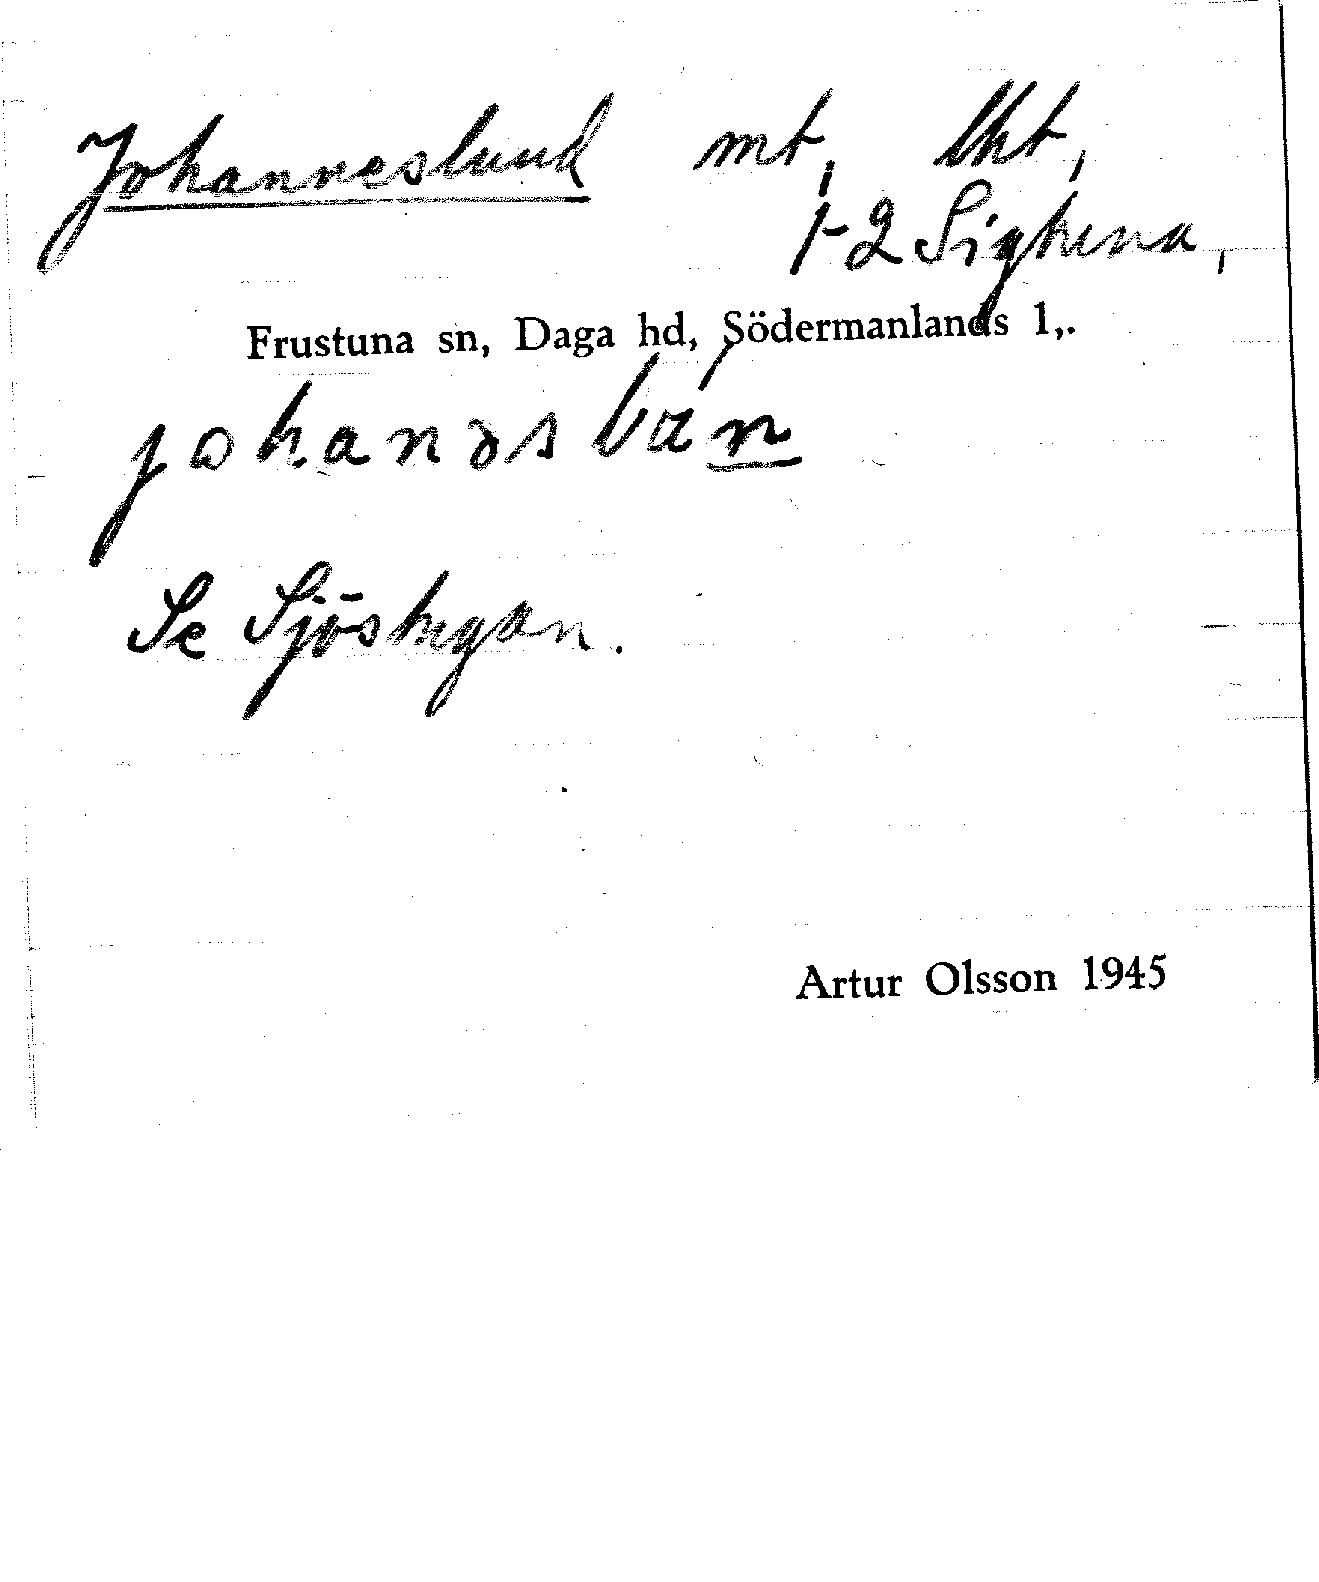 Johanneslund mt, lht,
1-2 Sighena,
Frustuna sn, Daga hd, Södermanlands l,.
johanəs
Se Sjöstugan.
Artur Olsson 1945